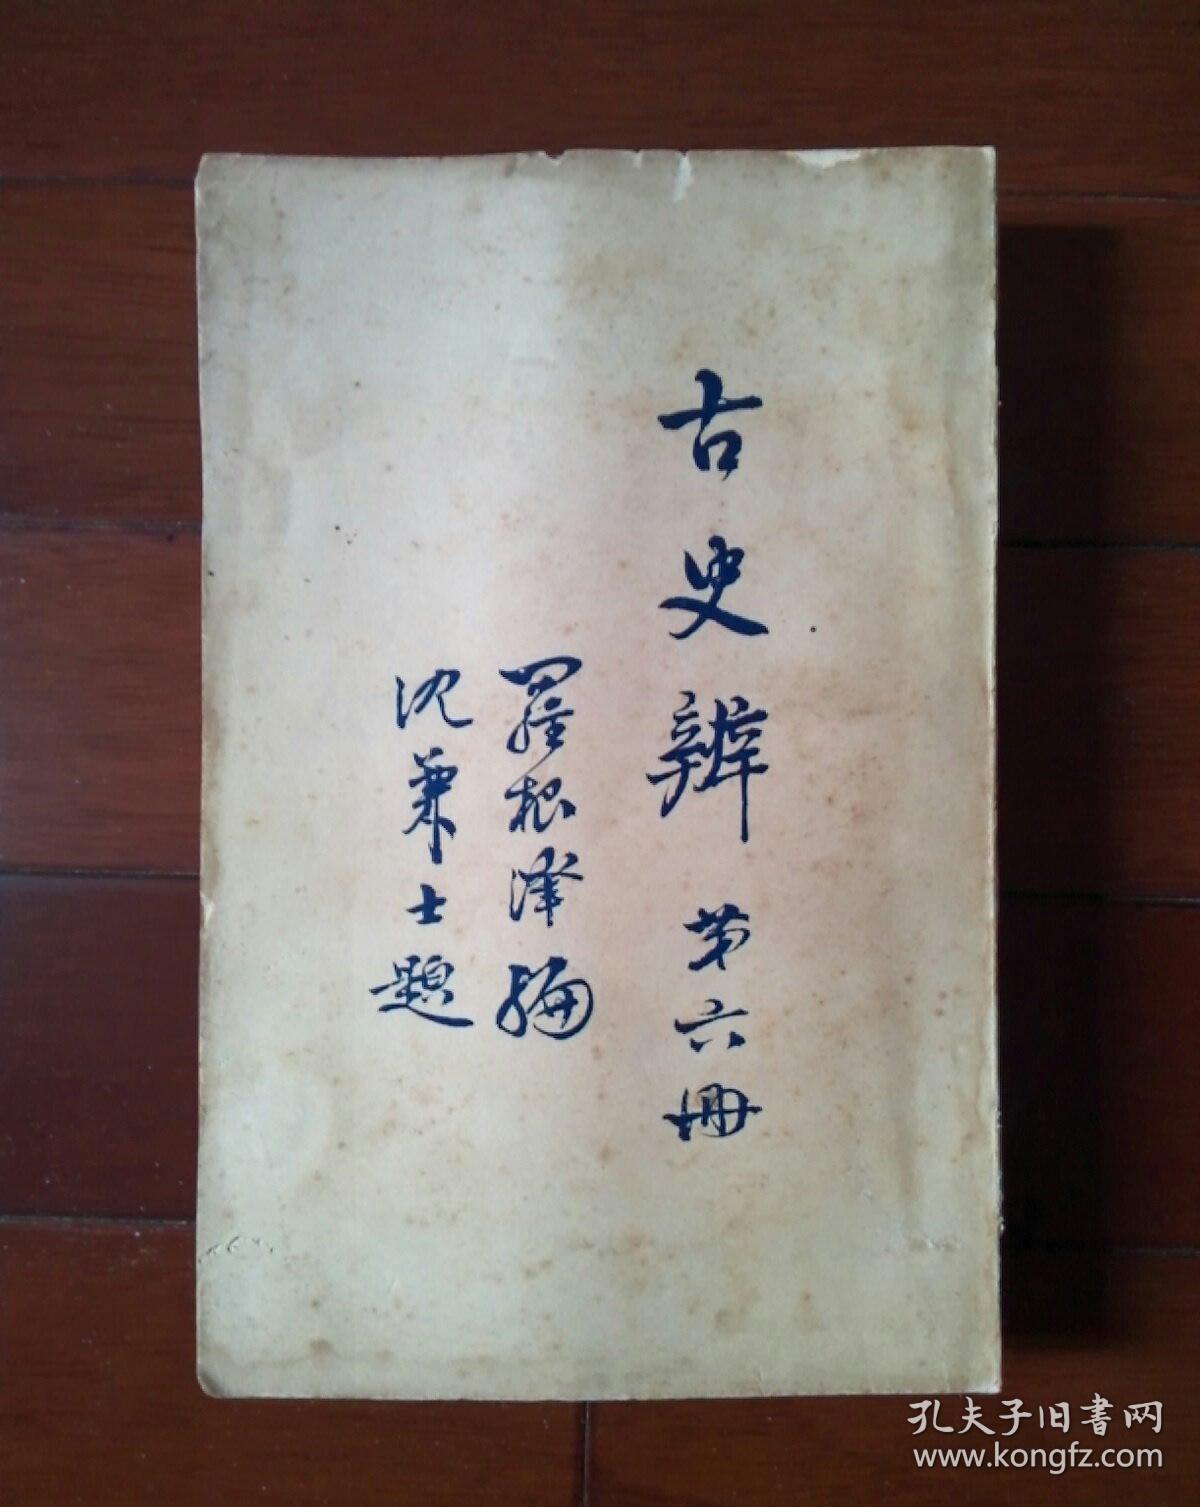 古史辨 第六冊
羅根澤編
沈兼士題
孔夫子旧書网
www.kongfz.com